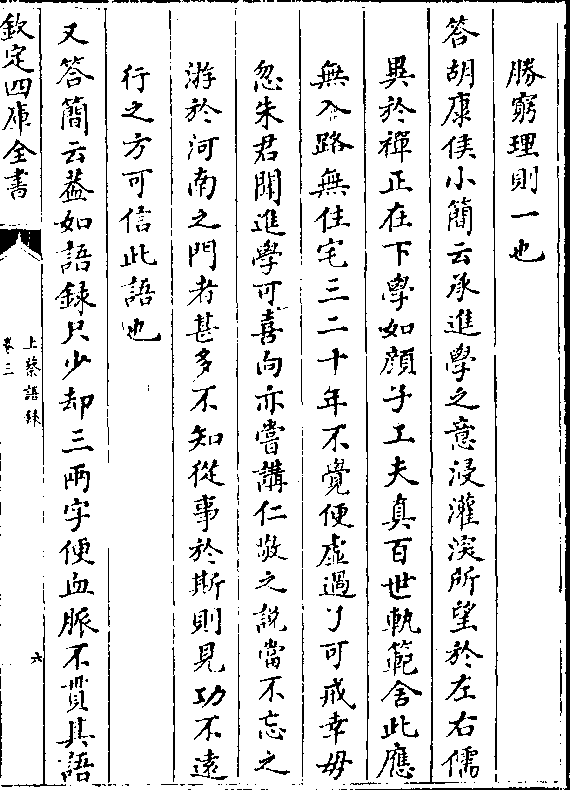 勝窮理則一也
答胡康侯小簡云承進學之意浸灌深所望於左右儒
異於禪正在下學如顔子工夫真百世軌範舍此應
無入路無住宅三二十年不覺便虛過了可戒幸毋
忽朱君聞進學可喜向亦嘗講仁敬之說當不忘之
游於河南之門者甚多不知從事於斯則見功不遠
行之方可信此語也
又答簡云蓋如語録只少却三兩字便血脈不貫其語
欽定四庫全書
上蔡語録
卷三
六